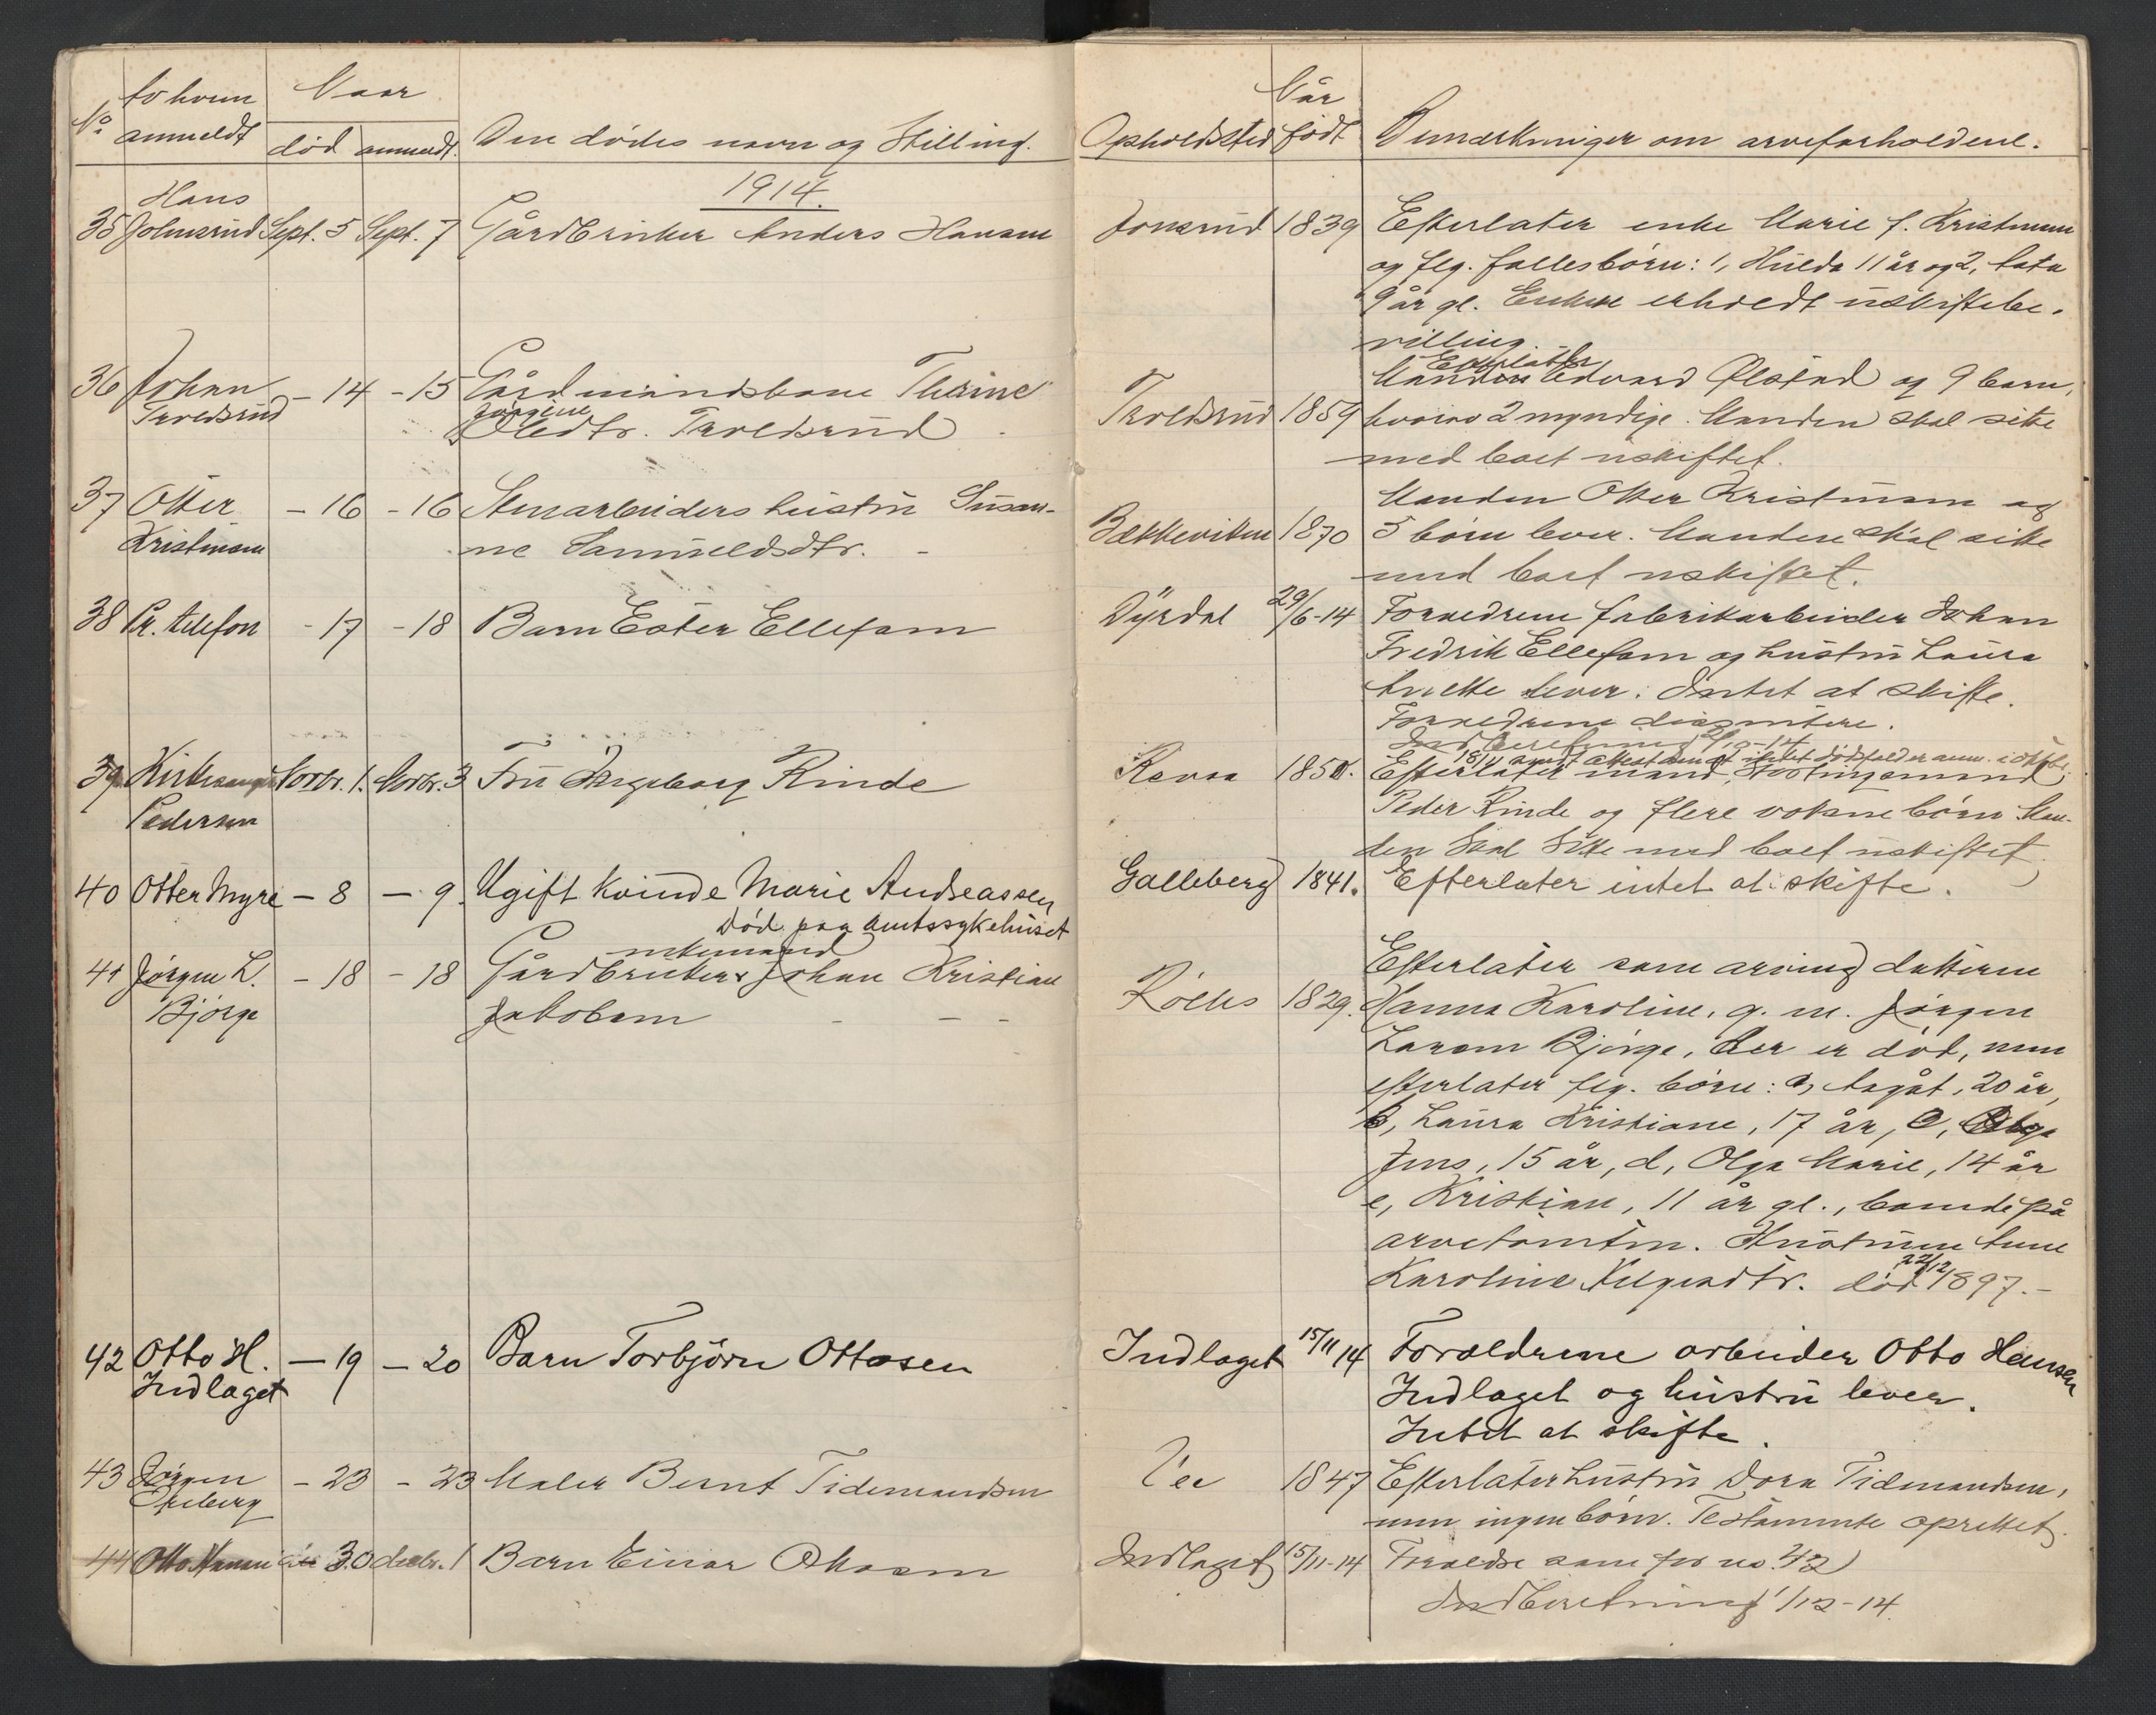 No
Av hvem
anmeldt
Naar
død
anmeldt.
Den dødes navn og Stilling.
Opholdssted
Når
født
Bemærkninger om arveforholdene.
1914.
35
Hans
Johnsrud
Sept. 5
Sept. 7
Gårdbruker Anders Hansen
Jonsrud
1839
Efterlater enke Marie f. Kristensen
og flg. fællesbörn: 1, Hulda 11 år og 2,
9 år gl. Enken erholdt uskiftebe-
villing.
36
Johan
Troldsrud
- 14
- 15
Gårdmandskone
Jörgine
Oledtr. Troldsrud
Troldsrud
1859
Efterlater
Manden Edvard Ølstad og 9 barn,
hvorav 2 myndige. Manden skal sitte
med boet uskiftet.
37
Otter
Kristensen
- 16
- 16
Stenarbeiders hustru Susan-
ne Samuelsdtr.
Bækkeviken
1870
Manden Otter Kristensen og
5 börn lever. Manden skal sitte
med boet uskiftet.
38
Pr. telefon
- 17
- 18
Barn Ester Ellefsen
Dyrdal
29/6-14
Forældrene fabrikarbeider Johan
Fredrik Ellefsen og hustru Laura
lever. Intet at skifte.
Forældrene dissentere.
Indberetning
39
Kirkesanger
Pedersen
Novbr. 1.
Novbr. 3
Fru Ingeborg Rinde
Revaa
1850.
Efterlater mand, Stortingsmand
Peder Rinde og flere voksne börn. Man-
den skal sitte med boet uskiftet.
40
Otter Myre
- 8
- 9.
Ugift kvinde Marie Andreassen
död paa amtssykehuset
Galleberg
1841.
Efterlater intet at skifte.
41
Jörgen L.
Bjørge
- 18
- 18
enkemand
Gårdbruker Johan Kristian
Jakobsen
RöKås
1829.
Efterlater som arving datteren
Hanna Karoline, g. m. Jörgen
Larsen Bjørge, der er död, men
efterlater flg. börn: a, Aagåt, 20 år,
b, Laura Kristiane, 17 år, c,
Jens, 15 år, d, Olga Marie, 14 år
e, Kristian, 11 år gl., boende på
arvetomten. Hustruen Anne
Karoline Helgesdtr. död 22/12 1897.-
42
Otto H.
Indlaget
- 19
- 20
Barn Torbjörn Ottosen
Indlaget
15/11 14
Forældrene arbeider Otto Hansen
Indlaget og hustru lever.
Intet at skifte.
43
Jörgen
Ekeberg
- 23
- 23
Maler Bernt Tidemandsen
1847
Efterlater hustru Dora Tidemandsen,
men ingen börn. Testamente oprettet.
44
Otto Hansen
30
decbr. 1
Barn Einar Ottosen
Indlaget
15/11-14
Forældre som for no. 42
Indberetning 1/12-14